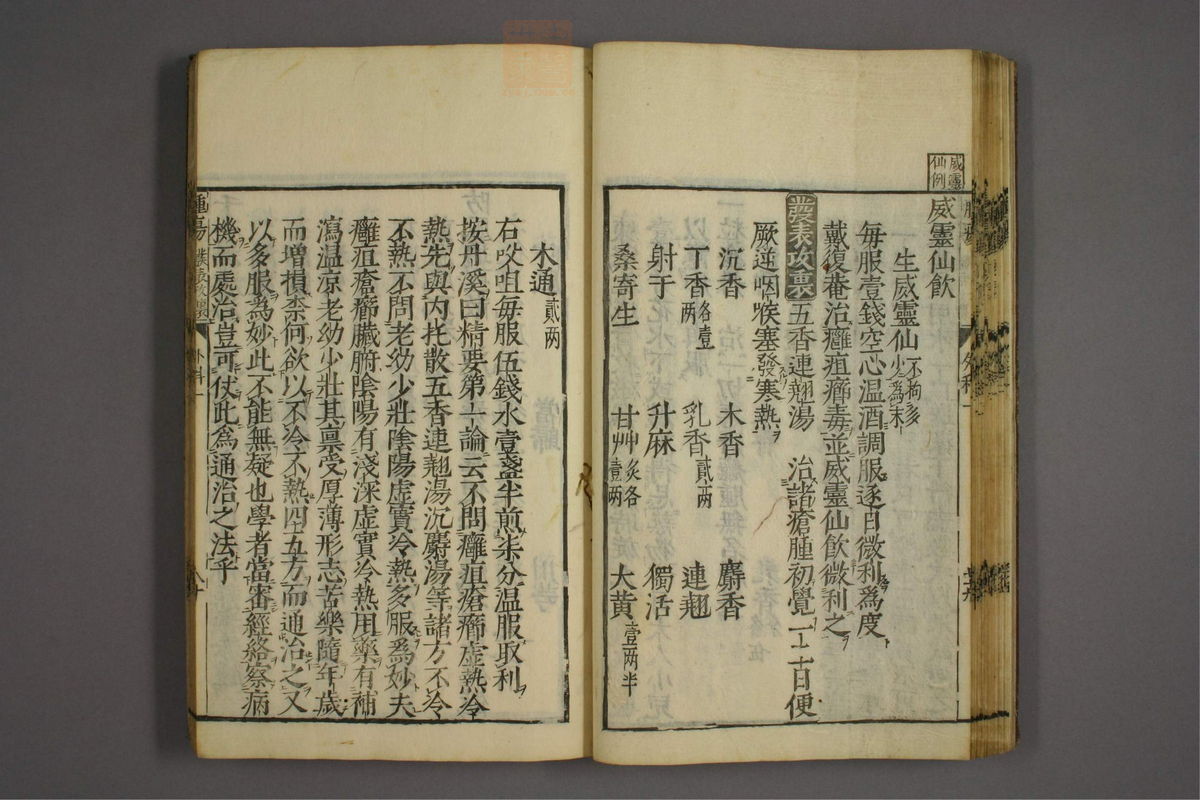 威靈仙例
威靈仙飲
生威靈仙不拘多少為末
每服壹錢空心温酒調服逐日微利為度
戴復菴治癰疽癤毒並威靈仙飲微利之
發表攻裏五香連翹湯 治諸瘡腫初覺一二日便
厥逆咽喉塞發寒熱
沉香 木香 麝香
丁香各壹兩 乳香貳兩 連翹
射于 升麻 獨活
桑寄生 甘艸炙各壹兩 大黃壹两半
木通貳两
右㕮咀每服伍錢水壹盞半煎柒分温服取利
按丹溪曰精要第十論云不問癰疽瘡癤虚熱冷
熱先與內托散五香連翹湯沉麝湯等諸方不冷
不熱不問老幼少壯陰陽虚實冷熱多服為妙夫
癰疽瘡癤臟腑陰陽有淺深虚實冷熱用藥有補
瀉温凉老幼少壯其稟受厚薄形志苦樂隨年歲
而增損柰何欲以不冷不熱四五方而通治之又
以多服為妙此不能無疑也學者當審經絡察病
機而處治豈可仗此為通治之法乎